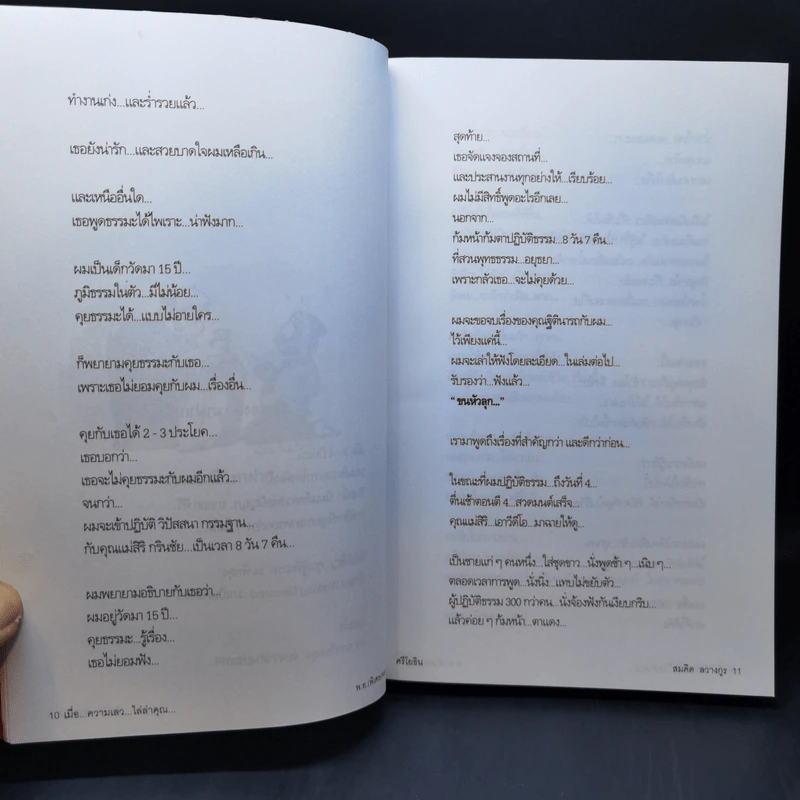 ทำงานเก่ง...และร่ำรวยแล้ว...
เธอยังน่ารัก...และสวยบาดใจผมเหลือเกิน...
และเหนืออื่นใด...
เธอพูดธรรมะได้ไพเราะ...น่าฟังมาก...
ผมเป็นเด็กวัดมา 15 ปี...
ภูมิธรรมในตัว...มีไม่น้อย...
คุยธรรมะได้...แบบไม่อายใคร...
ก็พยายามคุยธรรมะกับเธอ...
เพราะเธอไม่ยอมคุยกับผม...เรื่องอื่น...
คุยกับเธอได้ 2 - 3 ประโยค...
เธอบอกว่า...
เธอจะไม่คุยธรรมะกับผมอีกแล้ว...
จนกว่า...
ผมจะเข้าปฏิบัติ วิปัสสนา กรรมฐาน...
กับคุณแม่สิริ กรินชัย...เป็นเวลา 8 วัน 7 คืน...
ผมพยายามอธิบายกับเธอว่า...
ผมอยู่วัดมา 15 ปี...
คุยธรรมะ...รู้เรื่อง...
เธอไม่ยอมฟัง...
10 เมื่อ...ความเลว...ไล่ล่าคุณ...
สุดท้าย...
เธอจัดแจงจองสถานที่...
และประสานงานทุกอย่างให้...เรียบร้อย...
ผมไม่มีสิทธิ์พูดอะไรอีกเลย...
นอกจาก...
ก้มหน้าก้มตาปฏิบัติธรรม...8 วัน 7 คืน...
ที่สวนพุทธธรรม...อยุธยา...
เพราะกลัวเธอ...จะไม่คุยด้วย...
ผมจะขอจบเรื่องของคุณฐิตินารถกับผม...
ไว้เพียงแค่นี้...
ผมจะเล่าให้ฟังโดยละเอียด...ในเล่มต่อไป...
รับรองว่า...ฟังแล้ว...
“ ขนหัวลุก...”
เรามาพูดถึงเรื่องที่สำคัญกว่า และดีกว่าก่อน...
ในขณะที่ผมปฏิบัติธรรม...ถึงวันที่ 4...
ตื่นเช้าตอนตี 4...สวดมนต์เสร็จ...
คุณแม่สิริ...เอาวีดีโอ...มาฉายให้ดู...
เป็นชายแก่ ๆ คนหนึ่ง...ใส่ชุดขาว...นั่งพูดช้า ๆ...เนิบ ๆ...
ตลอดเวลาการพูด...นั่งนิ่ง...แทบไม่ขยับตัว...
ผู้ปฏิบัติธรรม 300 กว่าคน...นั่งจ้องฟังกันเงียบกริบ...
แล้วค่อย ๆ ก้มหน้า...ตาแดง...
สมคิด ลวางกูร 11